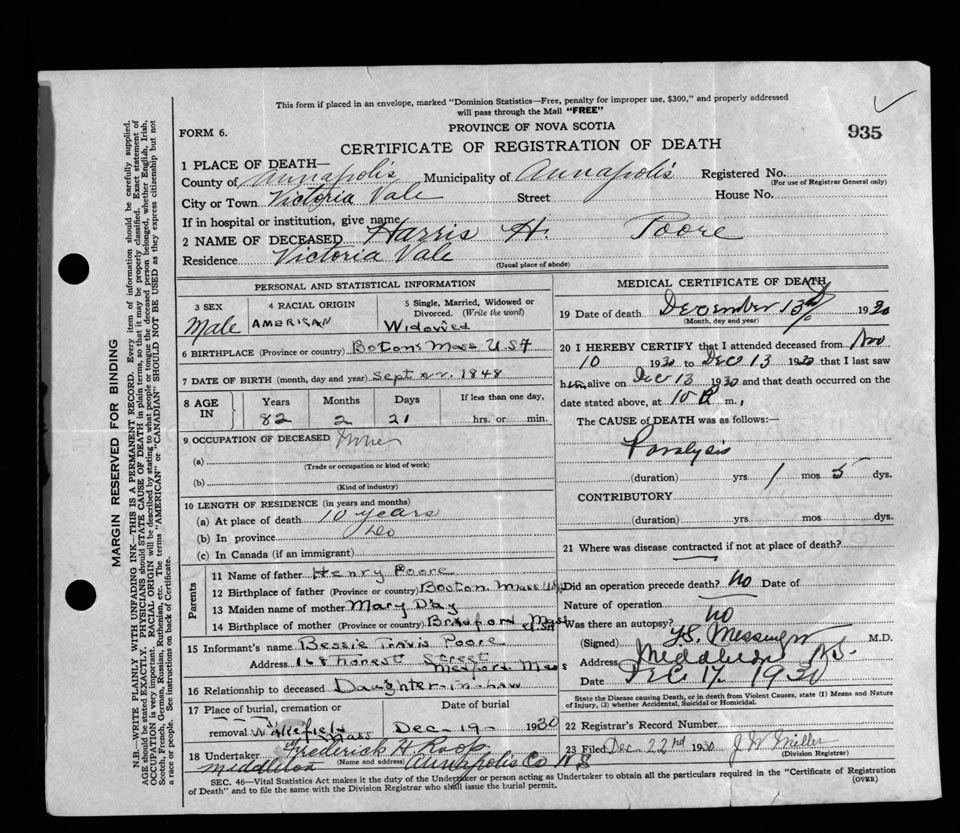 This form if placed in an envelope, marked "Dominion Statistics—Free, penalty for improper use, $300," and properly addressed
will pass through the Mail "FREE"
FORM 6.
PROVINCE OF NOVA SCOTIA
935
CERTIFICATE OF REGISTRATION OF DEATH
1 PLACE OF DEATH—
County of Annapolis Municipality of Annapolis Registered No.
(For use of Registrar General only)
City or Town Victoria Vale Street House No.
If in hospital or institution, give name
2 NAME OF DECEASED Harris H. Poore
Residence Victoria Vale
(Usual place of abode)
PERSONAL AND STATISTICAL INFORMATION
3 SEX 4 RACIAL ORIGIN 5 Single, Married, Widowed or
Divorced. (Write the word)
Male AMERICAN Widowed
6 BIRTHPLACE (Province or country) Botons Mass USA
7 DATE OF BIRTH (month, day and year) Sept 1848
8 AGE IN Years Months Days If less than one day,
82 2 21 hrs. or min.
9 OCCUPATION OF DECEASED
(a)
(Trade or occupation or kind of work)
(b)
(Kind of industry)
10 LENGTH OF RESIDENCE (in years and months)
(a) At place of death 10 years
(b) In province Do
(c) In Canada (if an immigrant)
Parents
11 Name of father Henry Poore
12 Birthplace of father (Province or country) Boston Mass USA
13 Maiden name of mother Mary Day
14 Birthplace of mother (Province or country) Bradford Mass USA
15 Informant's name Bessie Travis Poore
Address 168 Street Medford Mass
16 Relationship to deceased Daughter-in-Law
17 Place of burial, cremation or Date of burial
removal Wakefield Mass Dec-19- 1930
18 Undertaker Frederick H Roop
(Name and address)
Middleton Annapolis Co N S
MEDICAL CERTIFICATE OF DEATH
19 Date of death December 13th 1930
(Month, day and year)
20 I HEREBY CERTIFY that I attended deceased from Nov
10 1930 to Dec 13 1930 that I last saw
him alive on Dec 13 1930 and that death occurred on the
date stated above, at 10 P m.,
The CAUSE of DEATH was as follows:
Paralysis
(duration) yrs 1 mos 5 dys.
CONTRIBUTORY
(duration) yrs mos dys.
21 Where was disease contracted if not at place of death?
Did an operation precede death? No Date of
Nature of operation
Was there an autopsy? no
(Signed) Messenger M.D.
Address Middleton NS.
Date Dec 17 1930
State the Disease causing Death, or in death from Violent Causes, state (1) Means and Nature
of Injury, (2) whether Accidental, Suicidal or Homicidal.
22 Registrar's Record Number
23 Filed Dec 22nd 1930 J W Miller
(Division Registrar)
SEC. 46—Vital Statistics Act makes it the duty of the Undertaker or person acting as Undertaker to obtain all the particulars required in the "Certificate of Registration
of Death" and to file the same with the Division Registrar who shall issue the burial permit.
(OVER)
MARGIN RESERVED FOR BINDING
N.B.—WRITE PLAINLY WITH UNFADING INK—THIS IS A PERMANENT RECORD. Every item of information should be carefully supplied.
AGE should be stated EXACTLY. PHYSICIANS should STATE CAUSE OF DEATH in plain terms, so that it may be properly classified. Exact statement of
OCCUPATION is very important. RACIAL ORIGIN will be described by stating to what people or tongue the deceased person belonged, whether English, Irish,
Scotch, French, German, Russian, Ruthenian, etc. The terms "AMERICAN" or "CANADIAN" SHOULD NOT BE USED as they express citizenship but not
a race or people. See instructions on back of Certificate.